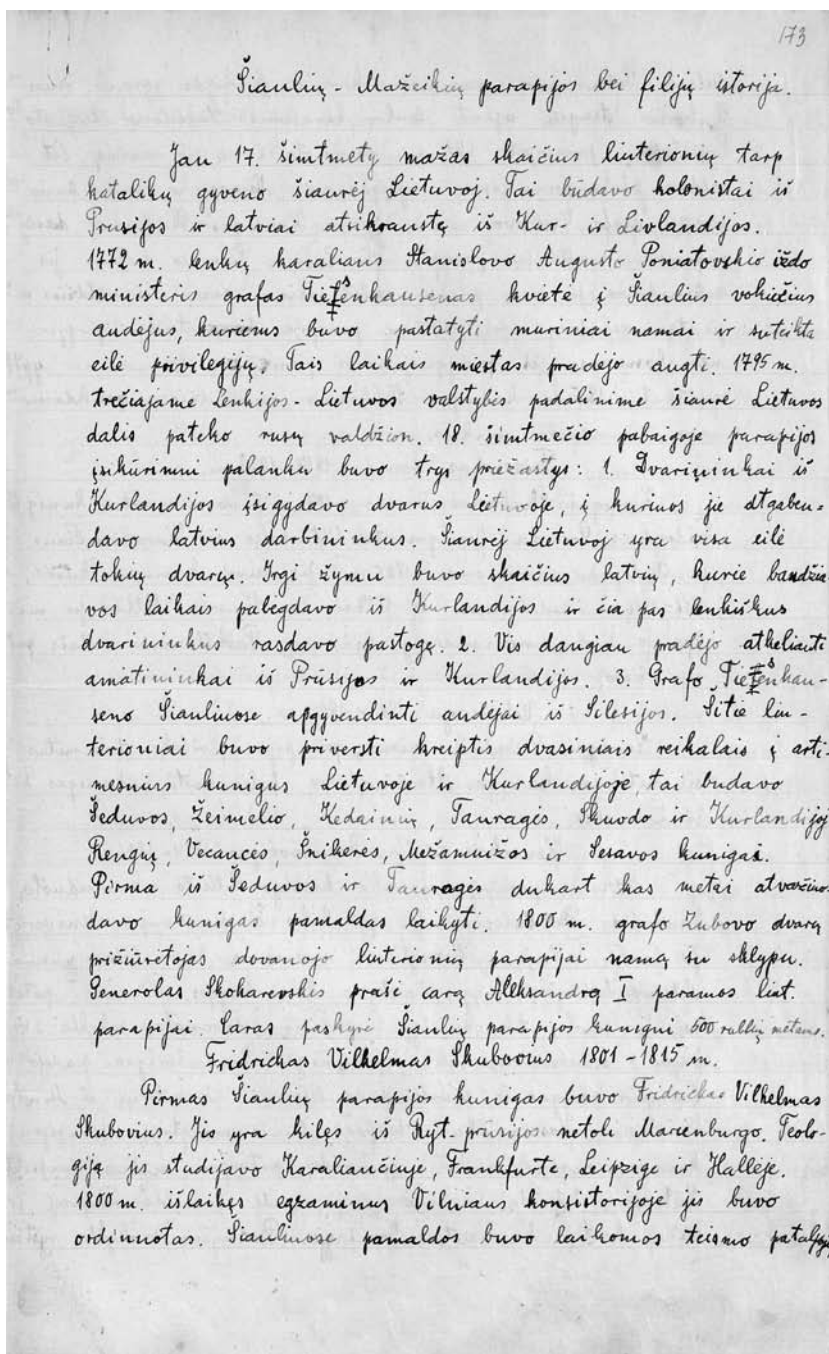 173
Šiaulių - Mažeikių parapijos bei filijų istorija.
Jau 17. šimtmety mažas skaičius liuterionių tarp
katalikų gyveno šiaurėj Lietuvoj. Tai būdavo kolonistai iš
Prusijos ir latviai atsikraustę iš Kur- ir Livlandijos.
1772 m. lenkų karaliaus Stanislovo Augusto Poniatovskio iždo
ministeris grafas Tiesenhausenas kvietė į Šiaulius vokiečius
audėjus, kuriems buvo pastatyti muriniai namai ir suteikta
eilė privilegijų. Tais laikais miestas pradėjo augti. 1795 m.
trečiajame Lenkijos - Lietuvos valstybės padalinime šiaurė Lietuvos
dalis pateko rusų valdžion. 18. šimtmečio pabaigoje parapijos
įsikūrimui palanku buvo trys priežastys: 1. Dvarininkai iš
Kurlandijos įsigydavo dvarus Lietuvoje, į kuriuos jie atgaben-
davo latvius darbininkus. Šiaurėj Lietuvoj yra visa eilė
tokių dvarų. Irgi žymu buvo skaičius latvių, kurie baudžia
vos laikais pabėgdavo iš Kurlandijos ir čia pas lenkiškus
dvarininkus rasdavo pastogę. 2. Vis daugiau pradėjo atkeliauti
amatininkai iš Prūsijos ir Kurlandijos. 3. Grafo Tiesenhau-
seno Šiauliuose apgyvendinti audėjai iš Silesijos. Šitie liu-
terioniai buvo priversti kreiptis dvasiniais reikalais į arti-
mesnius kunigus Lietuvoje ir Kurlandijoje, tai budavo
Šeduvos, Žeimelio, Kedainių, Tauragės, Skuodo ir Kurlandijoj
Rengių, Vecaucės, Šnikerės, Mežamuižos ir Sesavos kunigai.
Pirma iš Šeduvos ir Tauragės dukart kas metai atvažiuo-
davo kunigas pamaldas laikyti. 1800 m. grafo Zubovo dvarų
prižiūrėtojas dovanojo liuterionių parapijai namą su sklypu.
Generolas Skokarevskis prašė carą Aleksandrą I paramos liut.
parapijai. Caras paskyrė Šiaulių parapijos kunigui 500 rublių metams.
Fridrickas Vilhelmas Skubovius 1801 - 1815 m.
Pirmas Šiaulių parapijos kunigas buvo Fridrickas Vilhelmas
Skubovius. Jis yra kilęs iš Ryt. prūsijos netoli Marienburgo. Teolo-
giją jis studijavo Karaliaučiuje, Frankfurte, Leipzige ir Hallėje.
1800 m. išlaikęs egzaminus Vilniaus konsistorijoje jis buvo
ordinuotas. Šiauliuose pamaldos buvo laikomos teismo